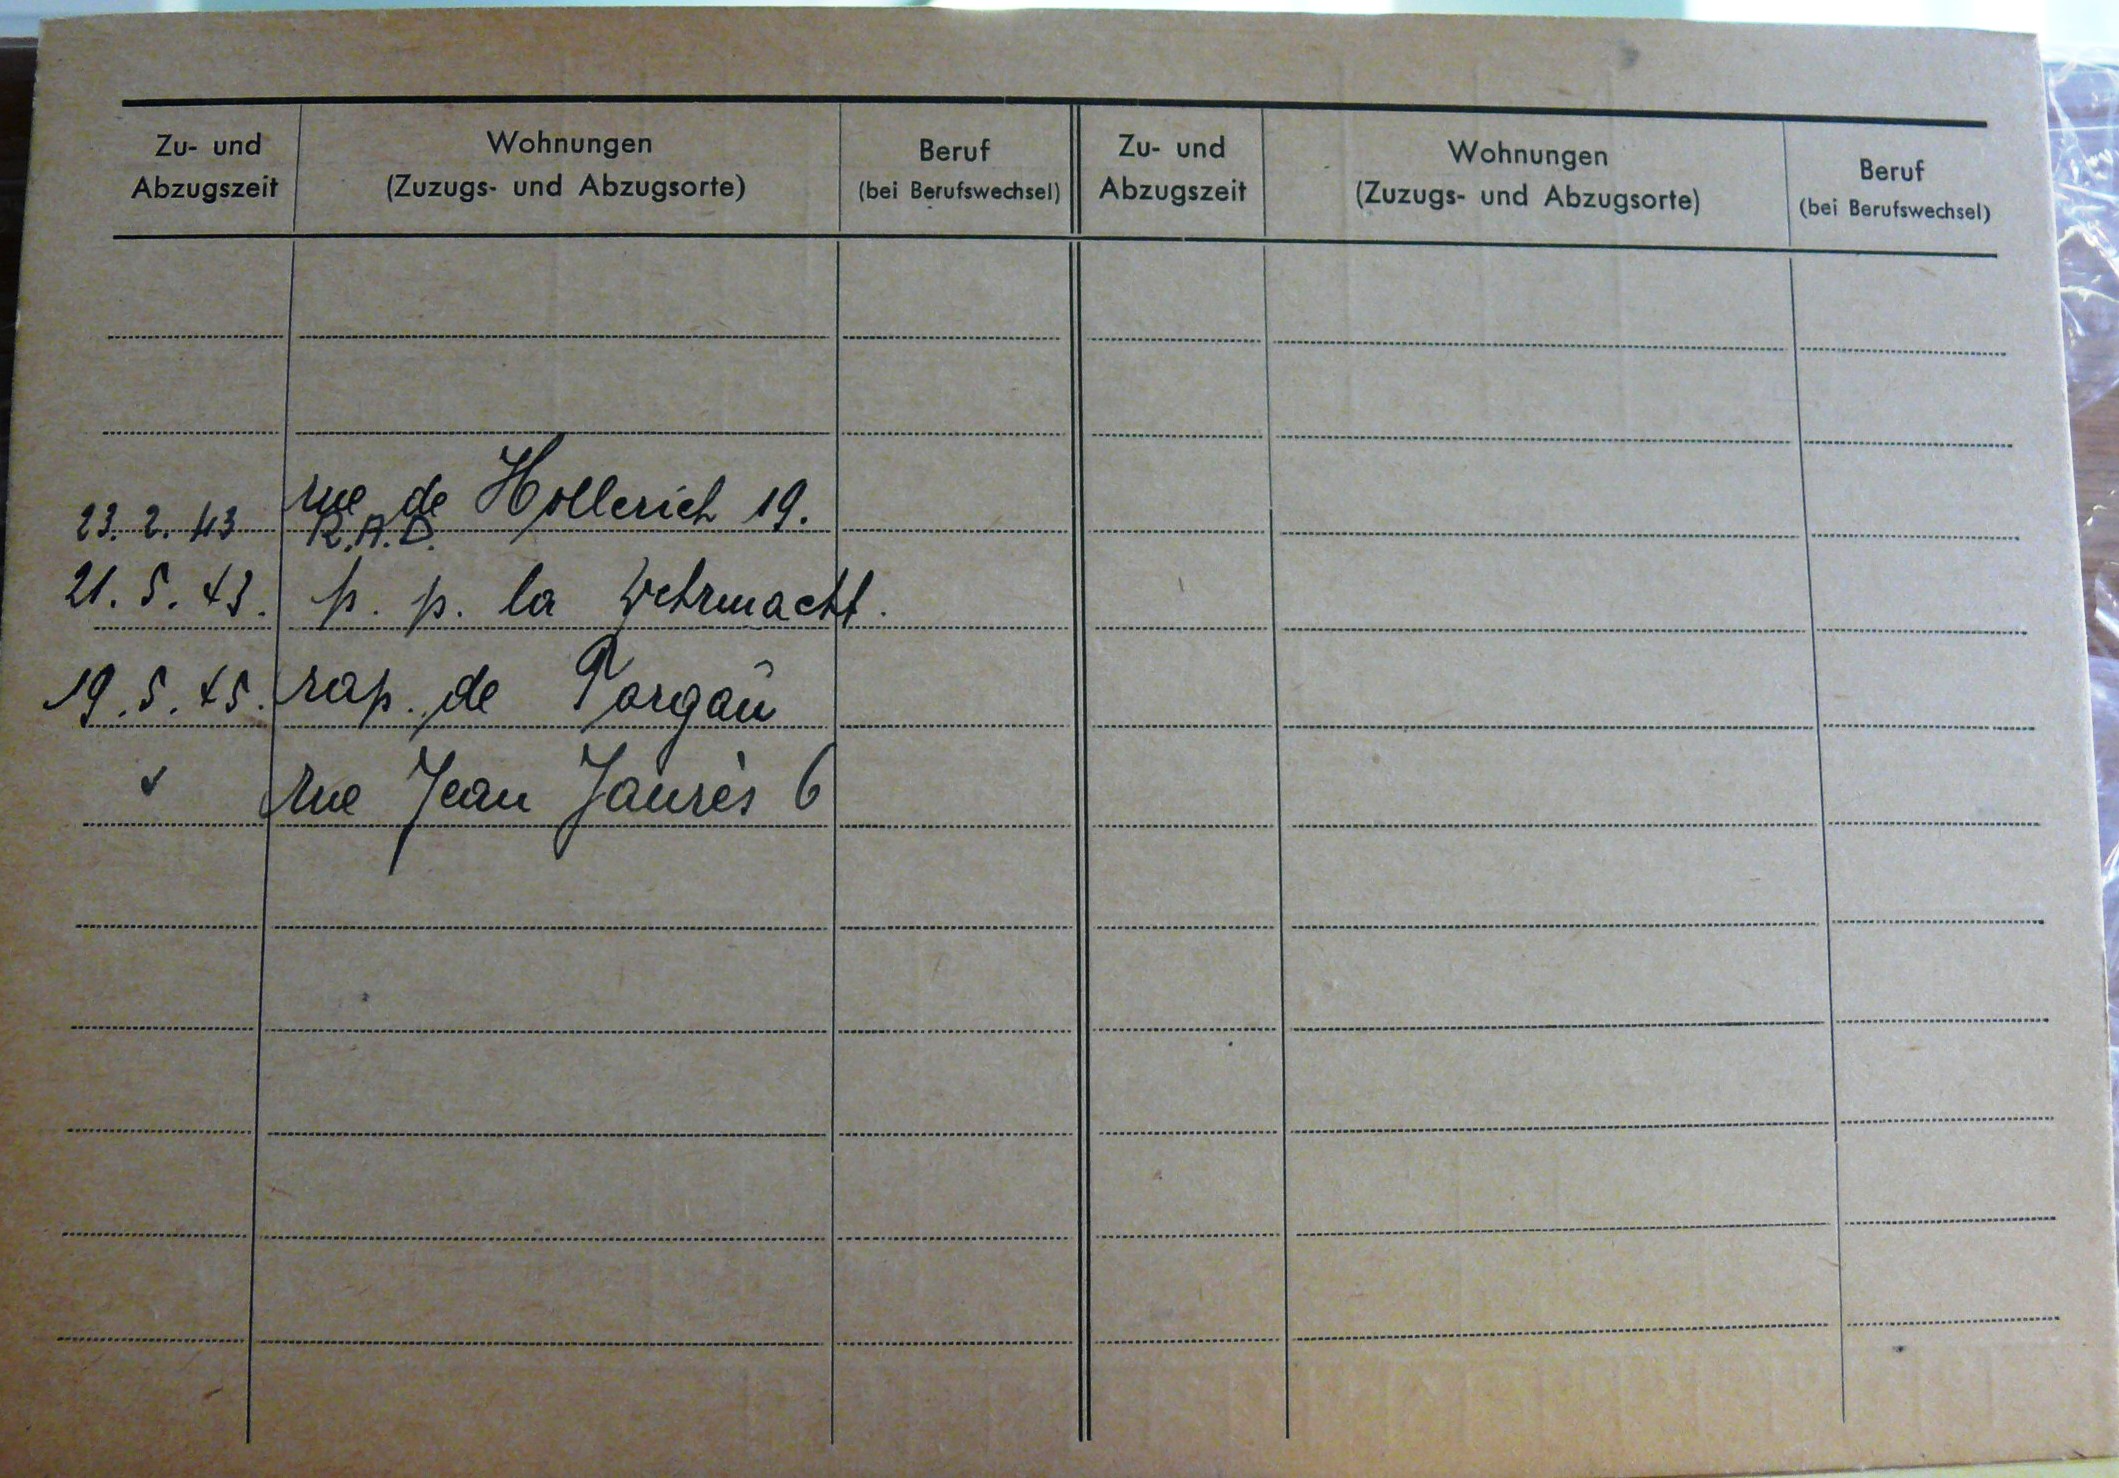 Zu- und Abzugszeit Wohnungen (Zuzugs- und Abzugsorte) Beruf (bei Berufswechsel) Zu- und Abzugszeit Wohnungen (Zuzugs- und Abzugsorte) Beruf (bei Berufswechsel)
rue de Hollerich 19.
23. 2. 43 R.A.D.
21. 5. 43. p. p. la Wehrmacht.
19. 5. 45. rap. de Torgau
rue Jean Jaurès 6